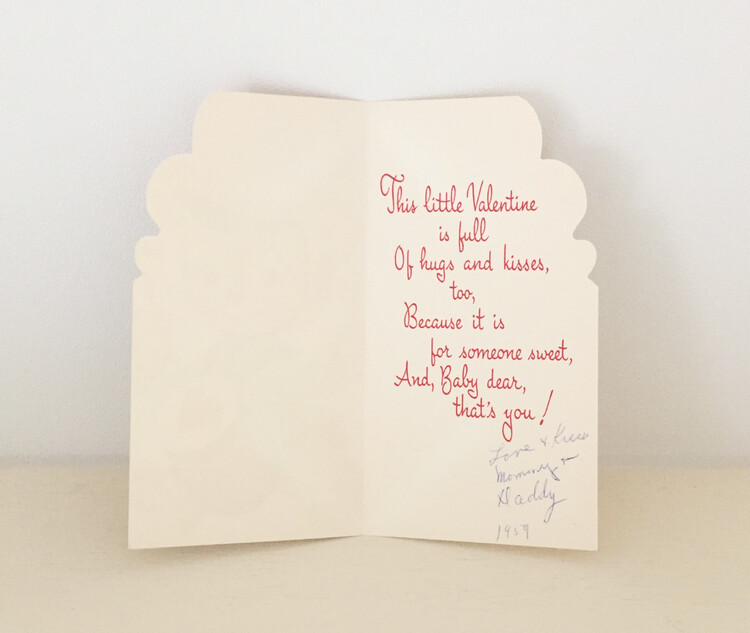 This little Valentine
is full
Of hugs and kisses,
too,
Because it is
for someone sweet,
And, Baby dear,
that's you!
Love + Kisses
Mommy +
Daddy
1959